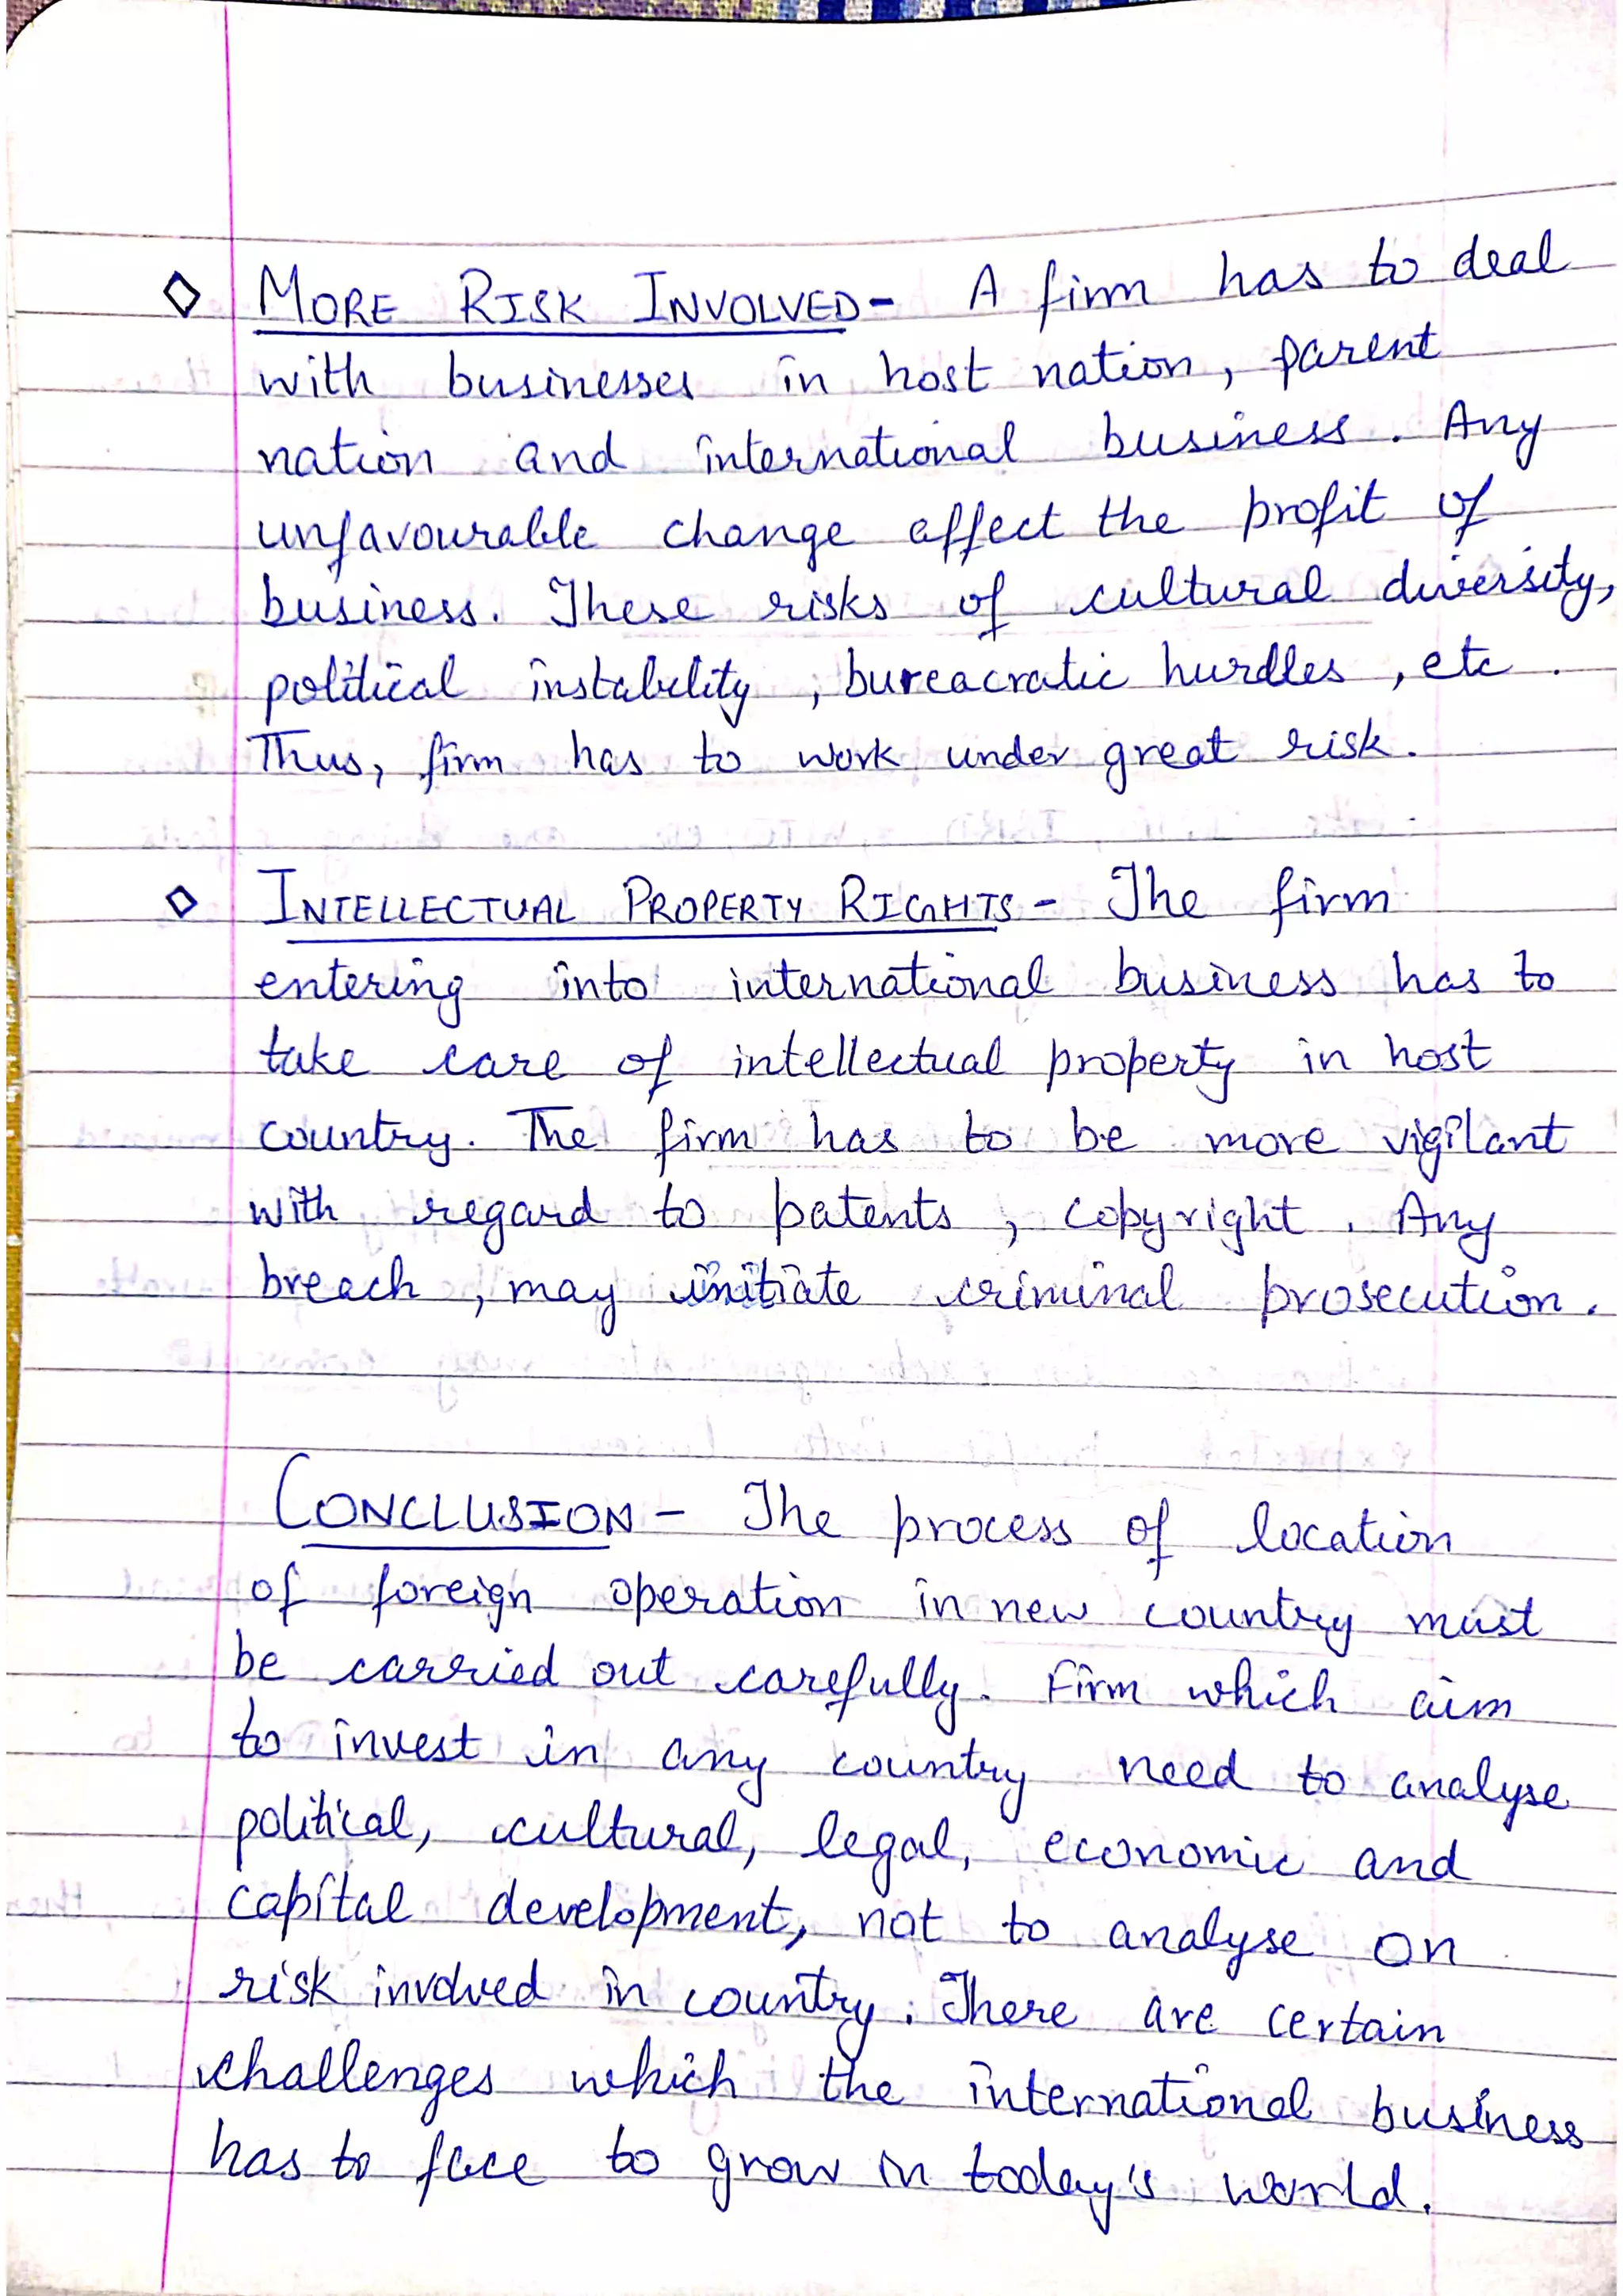 ◇ MORE RISK INVOLVED - A firm has to deal
with businesses in host nation, parent
nation and international business. Any
unfavourable change affect the profit of
business. These risks of cultural diversity,
political instability, bureacratic hurdles, etc.
Thus, firm has to work under great risk.
◇ INTELLECTUAL PROPERTY RIGHTS - The firm
entering into international business has to
take care of intellectual property in host
country. The firm has to be more vigilant
with regard to patents, copyright. Any
breach, may initiate criminal prosecution.
CONCLUSION - The process of location
of foreign operation in new country must
be carried out carefully. Firm which aim
to invest in any country need to analyse
political, cultural, legal, economic and
capital development, not to analyse on
risk involved in country. There are certain
challenges which the international business
has to face to grow in today's world.